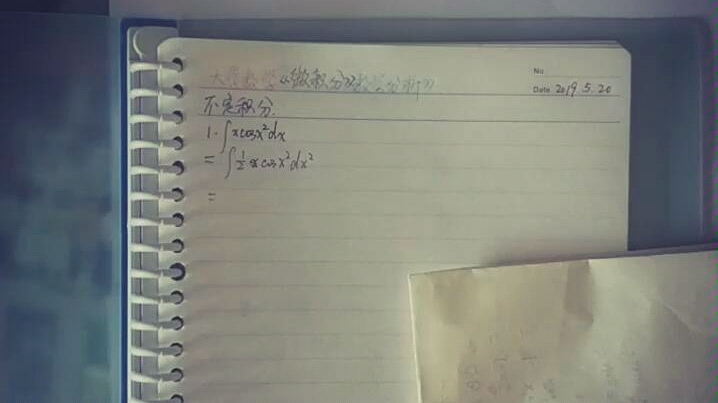 大学数学《微积分》数学分析》
No.
Date 2019.5.20
不定积分.
1. ∫xcosx²dx
= ∫½xcosx²dx²
=